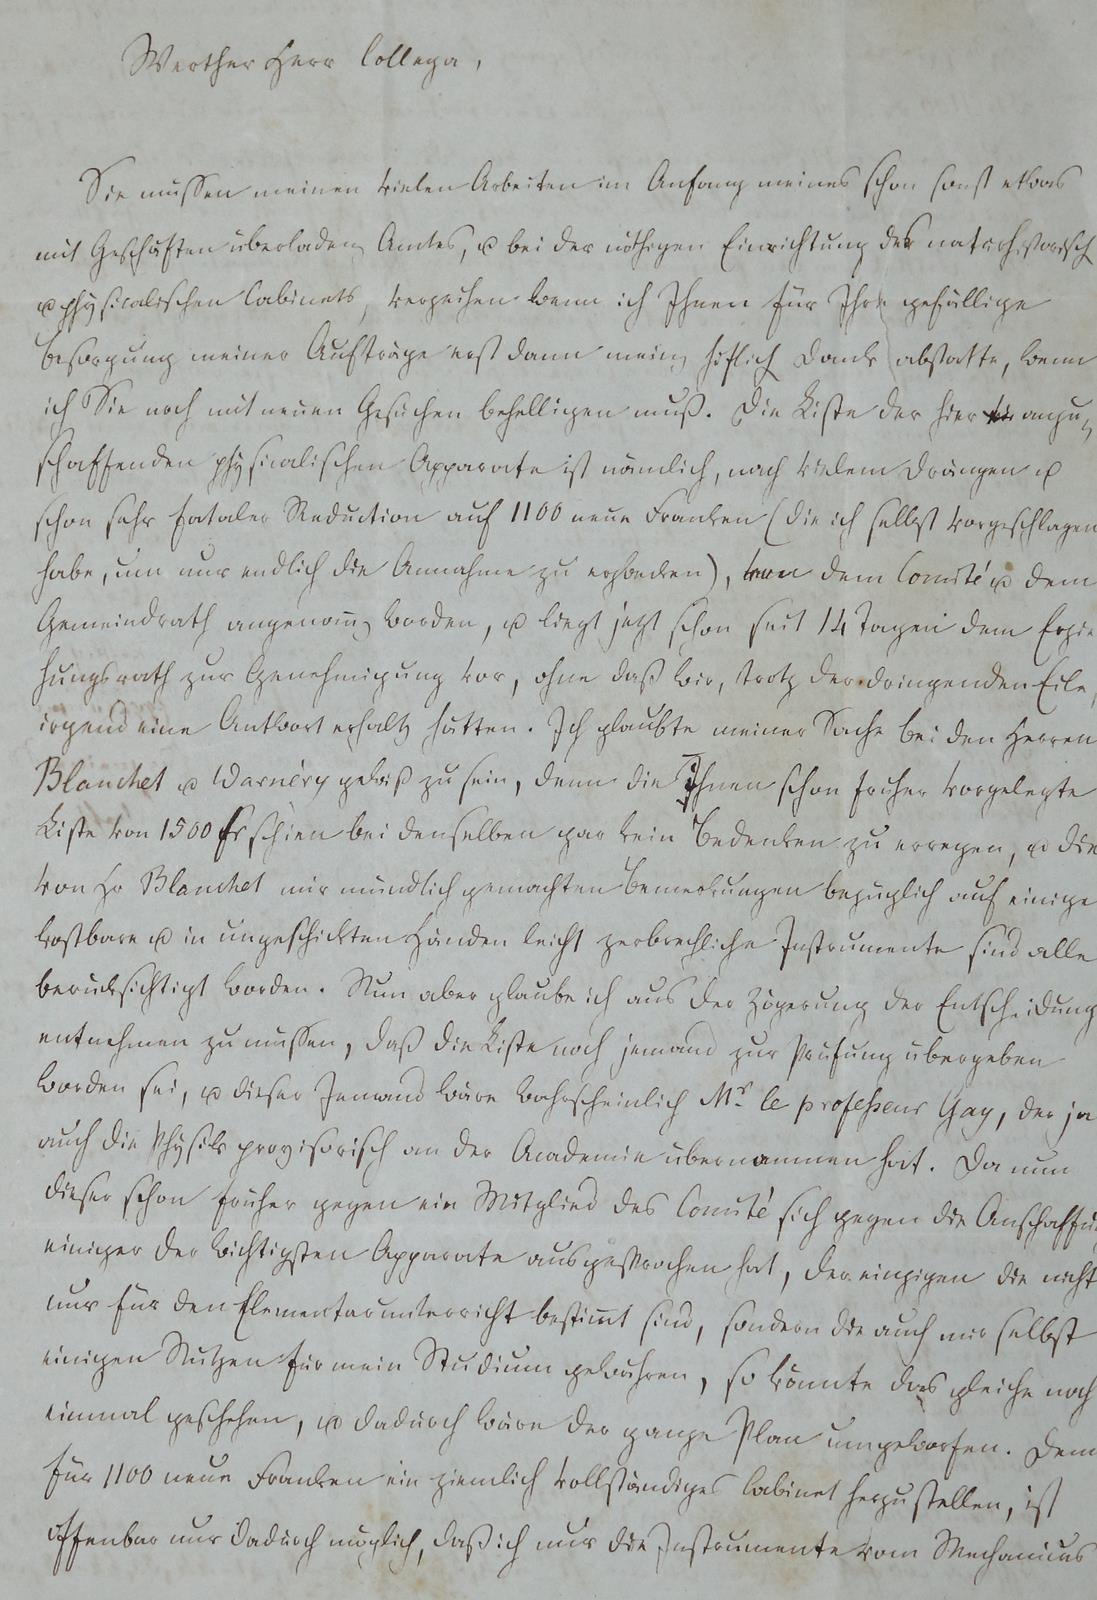 Werther Herr Collega,
Sie müssen meinen vielen Arbeiten im Anfang meines schon sonst etwas
mit Geschäften überladen Amtes, u bei der nöthigen Einrichtung des naturhistorisch
u physicalischen Cabinets, verzeihen wenn ich Ihnen für Ihre gefällige
Besorgung meiner Aufträge erst dann mein höflich Dank abstatte, wenn
ich Sie noch mit neuen Gesuchen behelligen muß. Die Liste der hier anzu-
schaffenden physicalischen Apparate ist nämlich, nach vielem Drängen u
schon sehr fataler Reduction auf 1100 neue Franken (die ich selbst vorgeschlagen
habe, um nur endlich die Annahme zu erzwecken), von dem Comité u dem
Gemeindrath angenom̅ worden, u liegt jetzt schon seit 14 Tagen dem Erzie
hungsrath zur Genehmigung vor, ohne daß wir, trotz der dringenden Eile,
irgend eine Antwort erhalt hätten. Ich glaubte meiner Sache bei den Herren
Blanchet u Warnéry gewiß zu sein, denn die Ihnen schon früher vorgelegte
Liste von 1500 fr schien bei denselben gar kein Bedenken zu erregen, u die
von Hr Blanchet mir mündlich gemachten Bemerkungen bezüglich auf einige
kostbare u in ungeschickten Händen leicht zerbrechliche Instrumente sind alle
berücksichtigt worden. Nun aber glaube ich aus der Zögerung der Entscheidung
entnehmen zu müssen, daß die Liste noch jemand zur Prüfung übergeben
worden sei, u dieser Jemand wäre wahrscheinlich Mr. le professeur Gay, der ja
auch die Physik provisorisch an der Academie übernommen hat. Da nun
dieser schon früher gegen ein Mitglied des Comité sich gegen die Anschaffu
einiger der wichtigsten Apparate ausgesprochen hat, der einzigen die nicht
nur für den Elementarunterricht bestim̅t sind, sondern die auch mir selbst
einigen Nutzen für mein Studium gewähren, so könnte das gleiche noch
einmal geschehen, u dadurch wäre der ganze Plan umgeworfen. Denn
für 1100 neue Franken ein ziemlich vollständiges Cabinet herzustellen, ist
offenbar nur dadurch möglich, daß ich mir die Instrumente vom Mechanicus